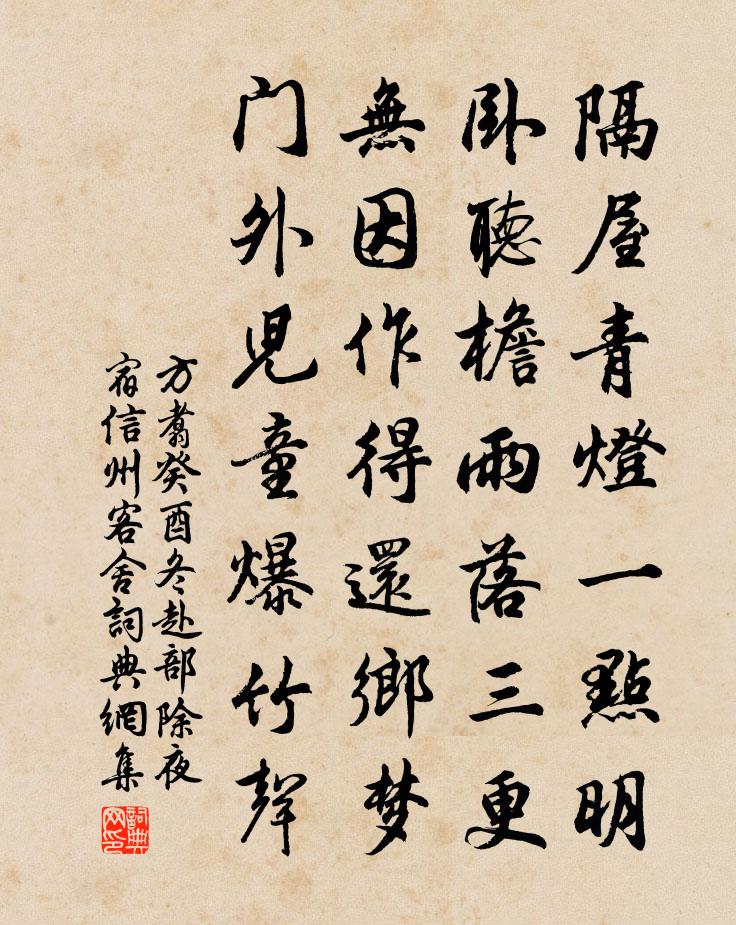 隔屋青燈一點明
卧聽檐雨落三更
無因作得還鄉梦
门外児童爆竹聲
方翥癸酉冬赴部除夜
宿信州客舍詞典網集
詞典网印